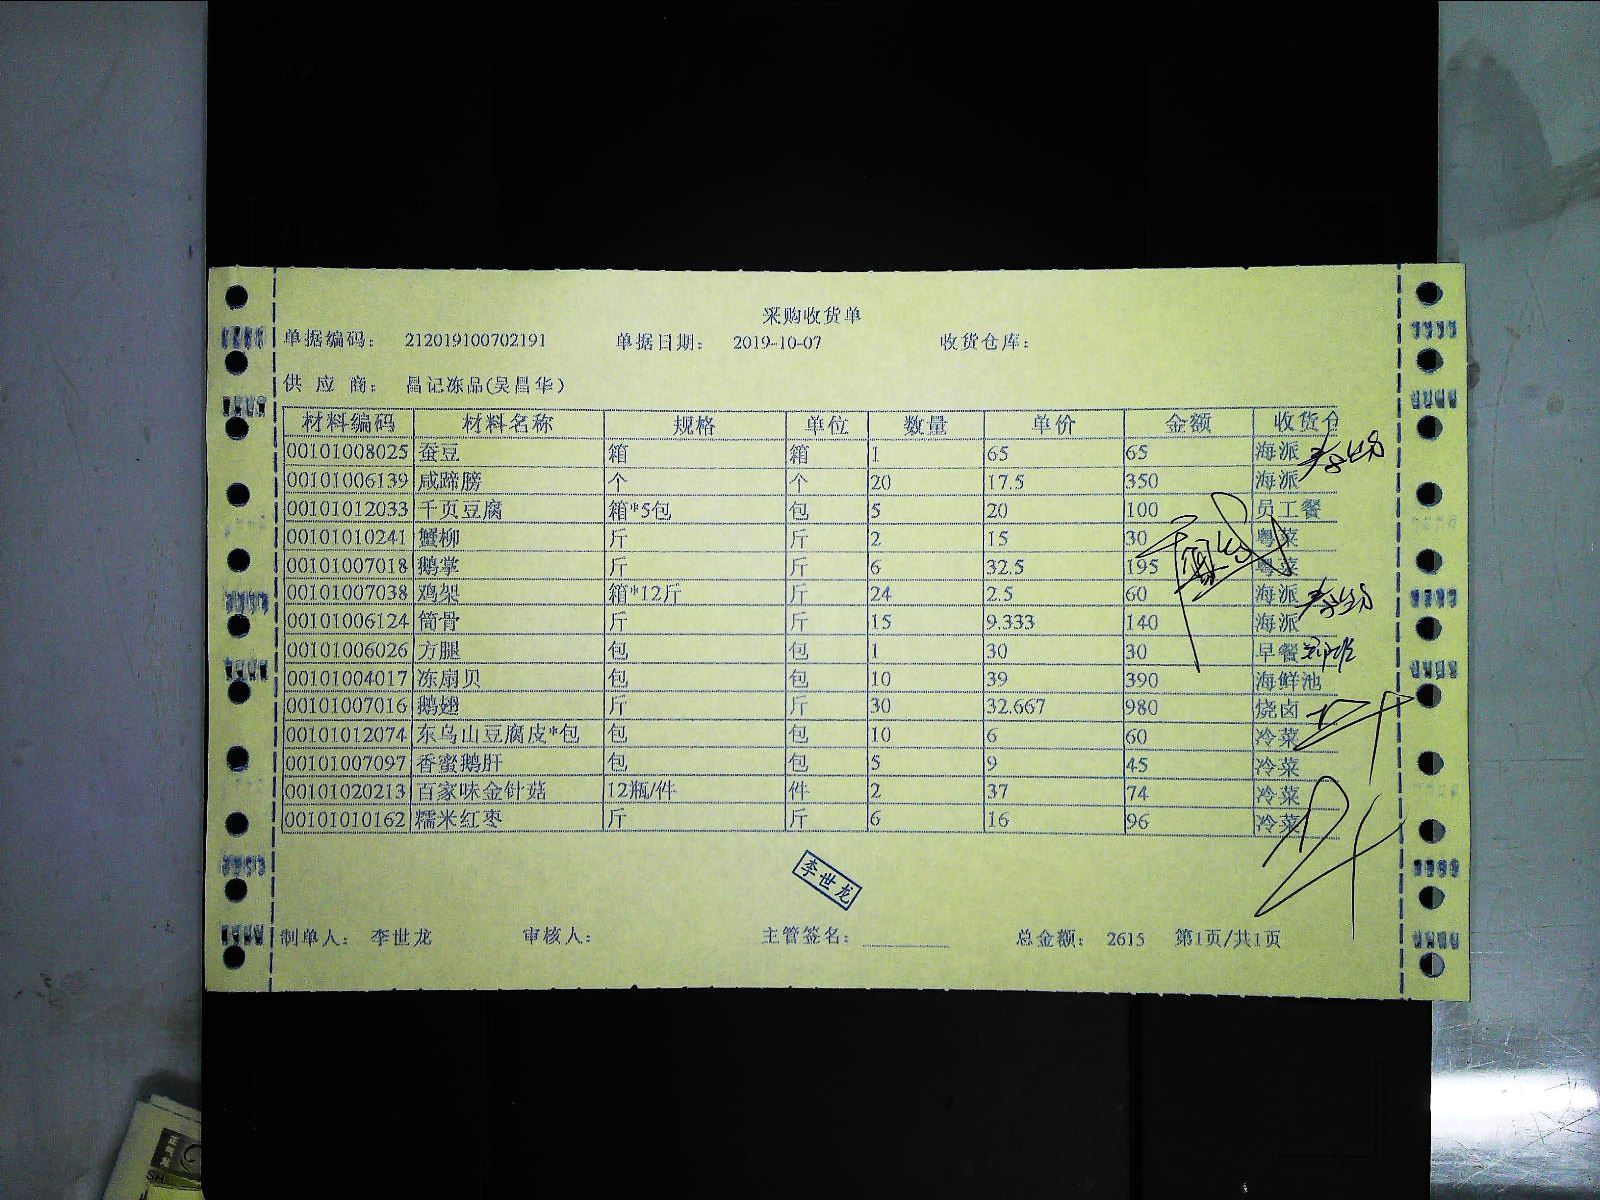 采购收货单
单据编码： 212019100702191 单据日期： 2019-10-07 收货仓库：
供 应 商： 昌记冻品(吴昌华)
材料编码 材料名称 规格 单位 数量 单价 金额 收货仓
00101008025 蚕豆 箱 箱 1 65 65 海派
00101006139 咸蹄膀 个 个 20 17.5 350 海派
00101012033 千页豆腐 箱*5包 包 5 20 100 员工餐
00101010241 蟹柳 斤 斤 2 15 30 粤菜
00101007018 鹅掌 斤 斤 6 32.5 195 粤菜
00101007038 鸡架 箱*12斤 斤 24 2.5 60 海派
00101006124 筒骨 斤 斤 15 9.333 140 海派
00101006026 方腿 包 包 1 30 30 早餐
00101004017 冻扇贝 包 包 10 39 390 海鲜池
00101007016 鹅翅 斤 斤 30 32.667 980 烧卤
00101012074 东乌山豆腐皮*包 包 包 10 6 60 冷菜
00101007097 香蜜鹅肝 包 包 5 9 45 冷菜
00101020213 百家味金针菇 12瓶/件 件 2 37 74 冷菜
00101010162 糯米红枣 斤 斤 6 16 96 冷菜
李世龙
制单人： 李世龙 审核人： 主管签名： 总金额： 2615 第1页/共1页